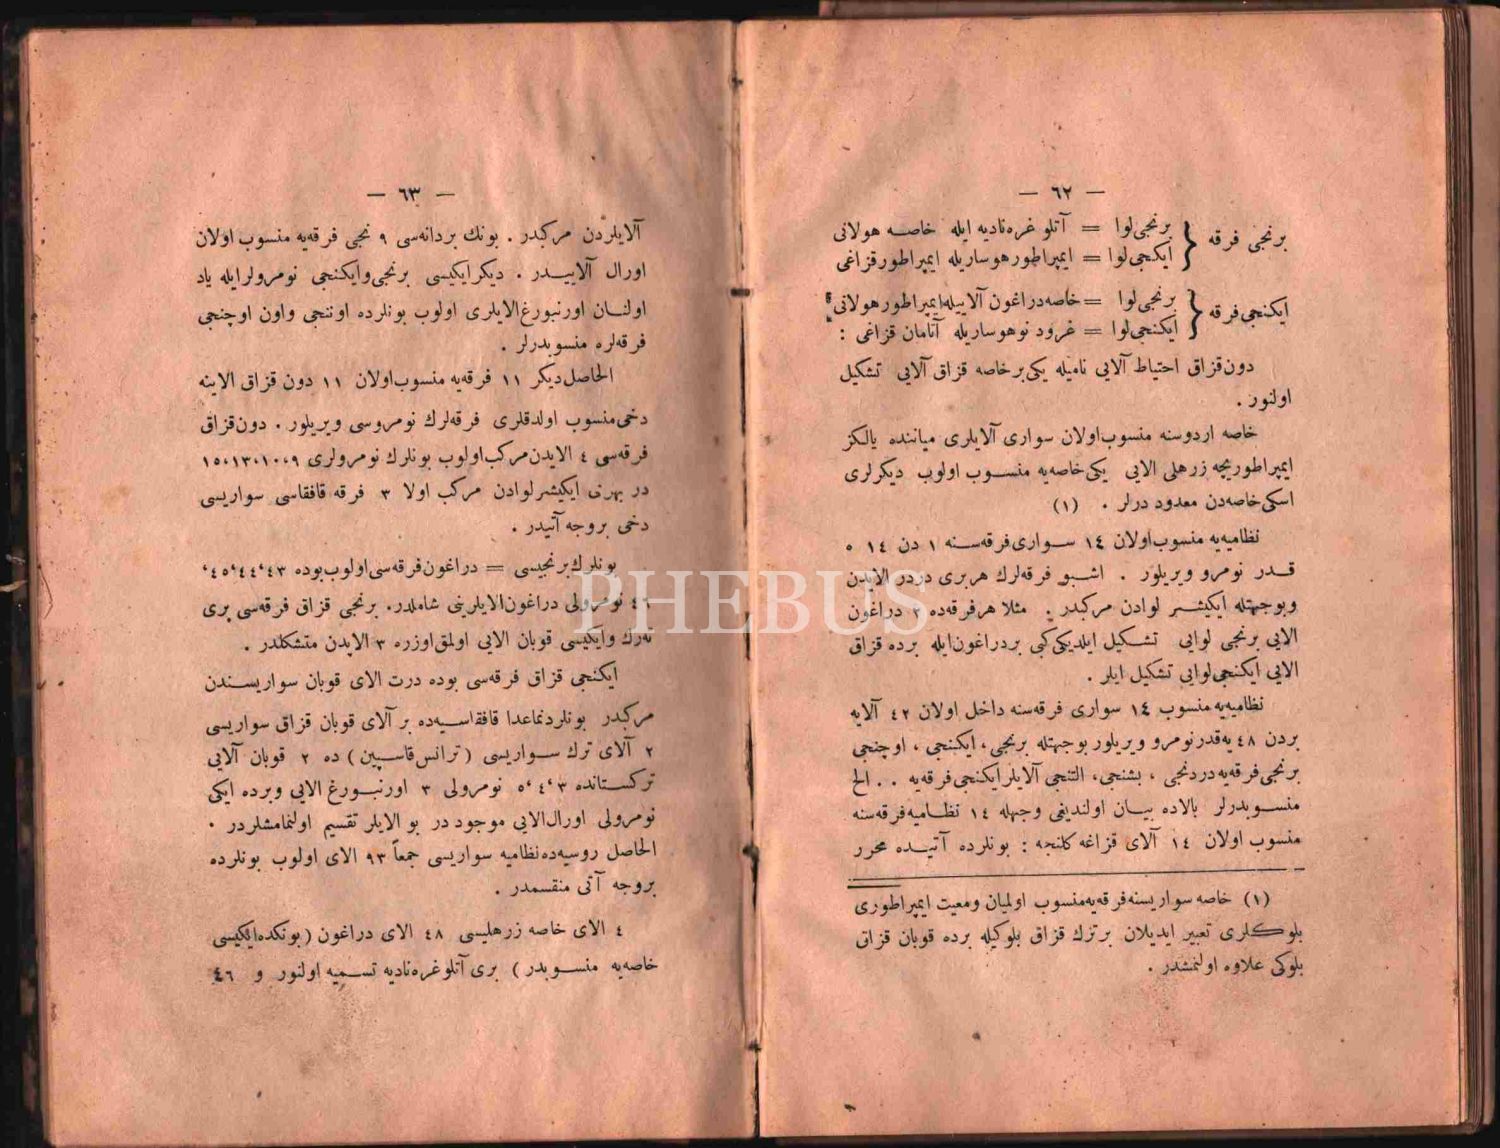 — ٦٢ —
برنجی فرقه { برنجی لوا = آتلو غره نادیه ایله خاصه هولانی
ایکنجی لوا = ایمپراطور هوساریله ایمپراطور قزاغی
ایکنجی فرقه { برنجی لوا = خاصه دراغون آلاییله ایمپراطور هولانی
ایکنجی لوا = غرود نو هوساریله آتامان قزاغی :
دون قزاق احتیاط آلایی نامیله یکی بر خاصه قزاق آلایی تشکیل
اولنور .
خاصه اردوسنه منسوب اولان سواری آلایلری میاننده یالکز
ایمپراطوریچه زرهلی الایی یکی خاصه‌یه منسوب اولوب دیکرلری
اسکی خاصه‌دن معدوددرلر . (١)
نظامیه‌یه منسوب اولان ١٤ سواری فرقه‌سنه ١ دن ١٤ ه
قدر نومرو ویریلور . اشبو فرقه‌لرك هربری دردر الایدن
وبوجهتله ایکیشر لوادن مرکبدر . مثلا هر فرقه‌ده ٣ دراغون
الایی برنجی لوایی تشکیل ایلدیکی کبی بر دراغون ایله برده قزاق
الایی ایکنجی لوایی تشکیل ایلر .
نظامیه‌یه منسوب ١٤ سواری فرقه‌سنه داخل اولان ٤٢ آلایه
بردن ٤٨ یه‌قدر نومرو ویریلور بوجهتله برنجی ، ایکنجی ، اوچنجی
برنجی فرقه‌یه دردنجی ، بشنجی ، التنجی آلایلر ایکنجی فرقه‌یه . . الخ
منسوبدرلر بالاده بیان اولندیغی وجهله ١٤ نظامیه فرقه‌سنه
منسوب اولان ١٤ آلای قزاغه کلنجه : بونلرده آتیده محرر
(١) خاصه سواریسنه فرقه‌یه منسوب اولمیان ومعیت ایمپراطوری
بلوکلری تعبیر ایدیلان بر ترك قزاق بلوکیله برده قوبان قزاق
بلوکی علاوه اولنمشدر .
— ٦٣ —
آلایلردن مرکبدر . بونك بردانه‌سی ٩ نجی فرقه‌یه منسوب اولان
اورال آلاییدر . دیکر ایکیسی برنجی وایکنجی نومرولر ایله یاد
اولنان اورنبورغ الایلری اولوب بونلرده اوننجی واون اوچنجی
فرقه‌لره منسوبدرلر .
الحاصل دیکر ١١ فرقه‌یه منسوب اولان ١١ دون قزاق الاینه
دخی منسوب اولدقلری فرقه‌لرك نومروسی ویریلور . دون قزاق
فرقه‌سی ٤ الایدن مرکب اولوب بونلرك نومرولری ٩،١٠،١٣،١٥
در بهری ایکیشر لوادن مرکب اولا ٣ فرقه قافقاسی سواریسی
دخی بروجه آتیدر .
بونلرك برنجیسی = دراغون فرقه‌سی اولوب بوده ٤٣،٤٤،٤٥،
٤٦ نومرولی دراغون الایلرینی شاملدر. برنجی قزاق فرقه‌سی بری
ترك وایکیسی قوبان الایی اولمق اوزره ٣ الایدن متشکلدر .
ایکنجی قزاق فرقه‌سی بوده درت الای قوبان سواریسندن
مرکبدر بونلردنماعدا قافقاسیه‌ده بر آلای قوبان قزاق سواریسی
٢ آلای ترك سواریسی (ترانس قاسپین) ده ٢ قوبان آلایی
ترکستانده ٣،٤،٥ نومرولی ٣ اورنبورغ الایی وبرده ایکی
نومرولی اورال الایی موجوددر بو الایلر تقسیم اولنمامشلردر .
الحاصل روسیه‌ده نظامیه سواریسی جمعاً ٩٣ الای اولوب بونلرده
بروجه آتی منقسمدر .
٤ الای خاصه زرهلیسی ٤٨ الای دراغون (بونکده ایکیسی
خاصه‌یه منسوبدر) بری آتلو غره نادیه تسمیه اولنور و ٤٦
PHEBUS